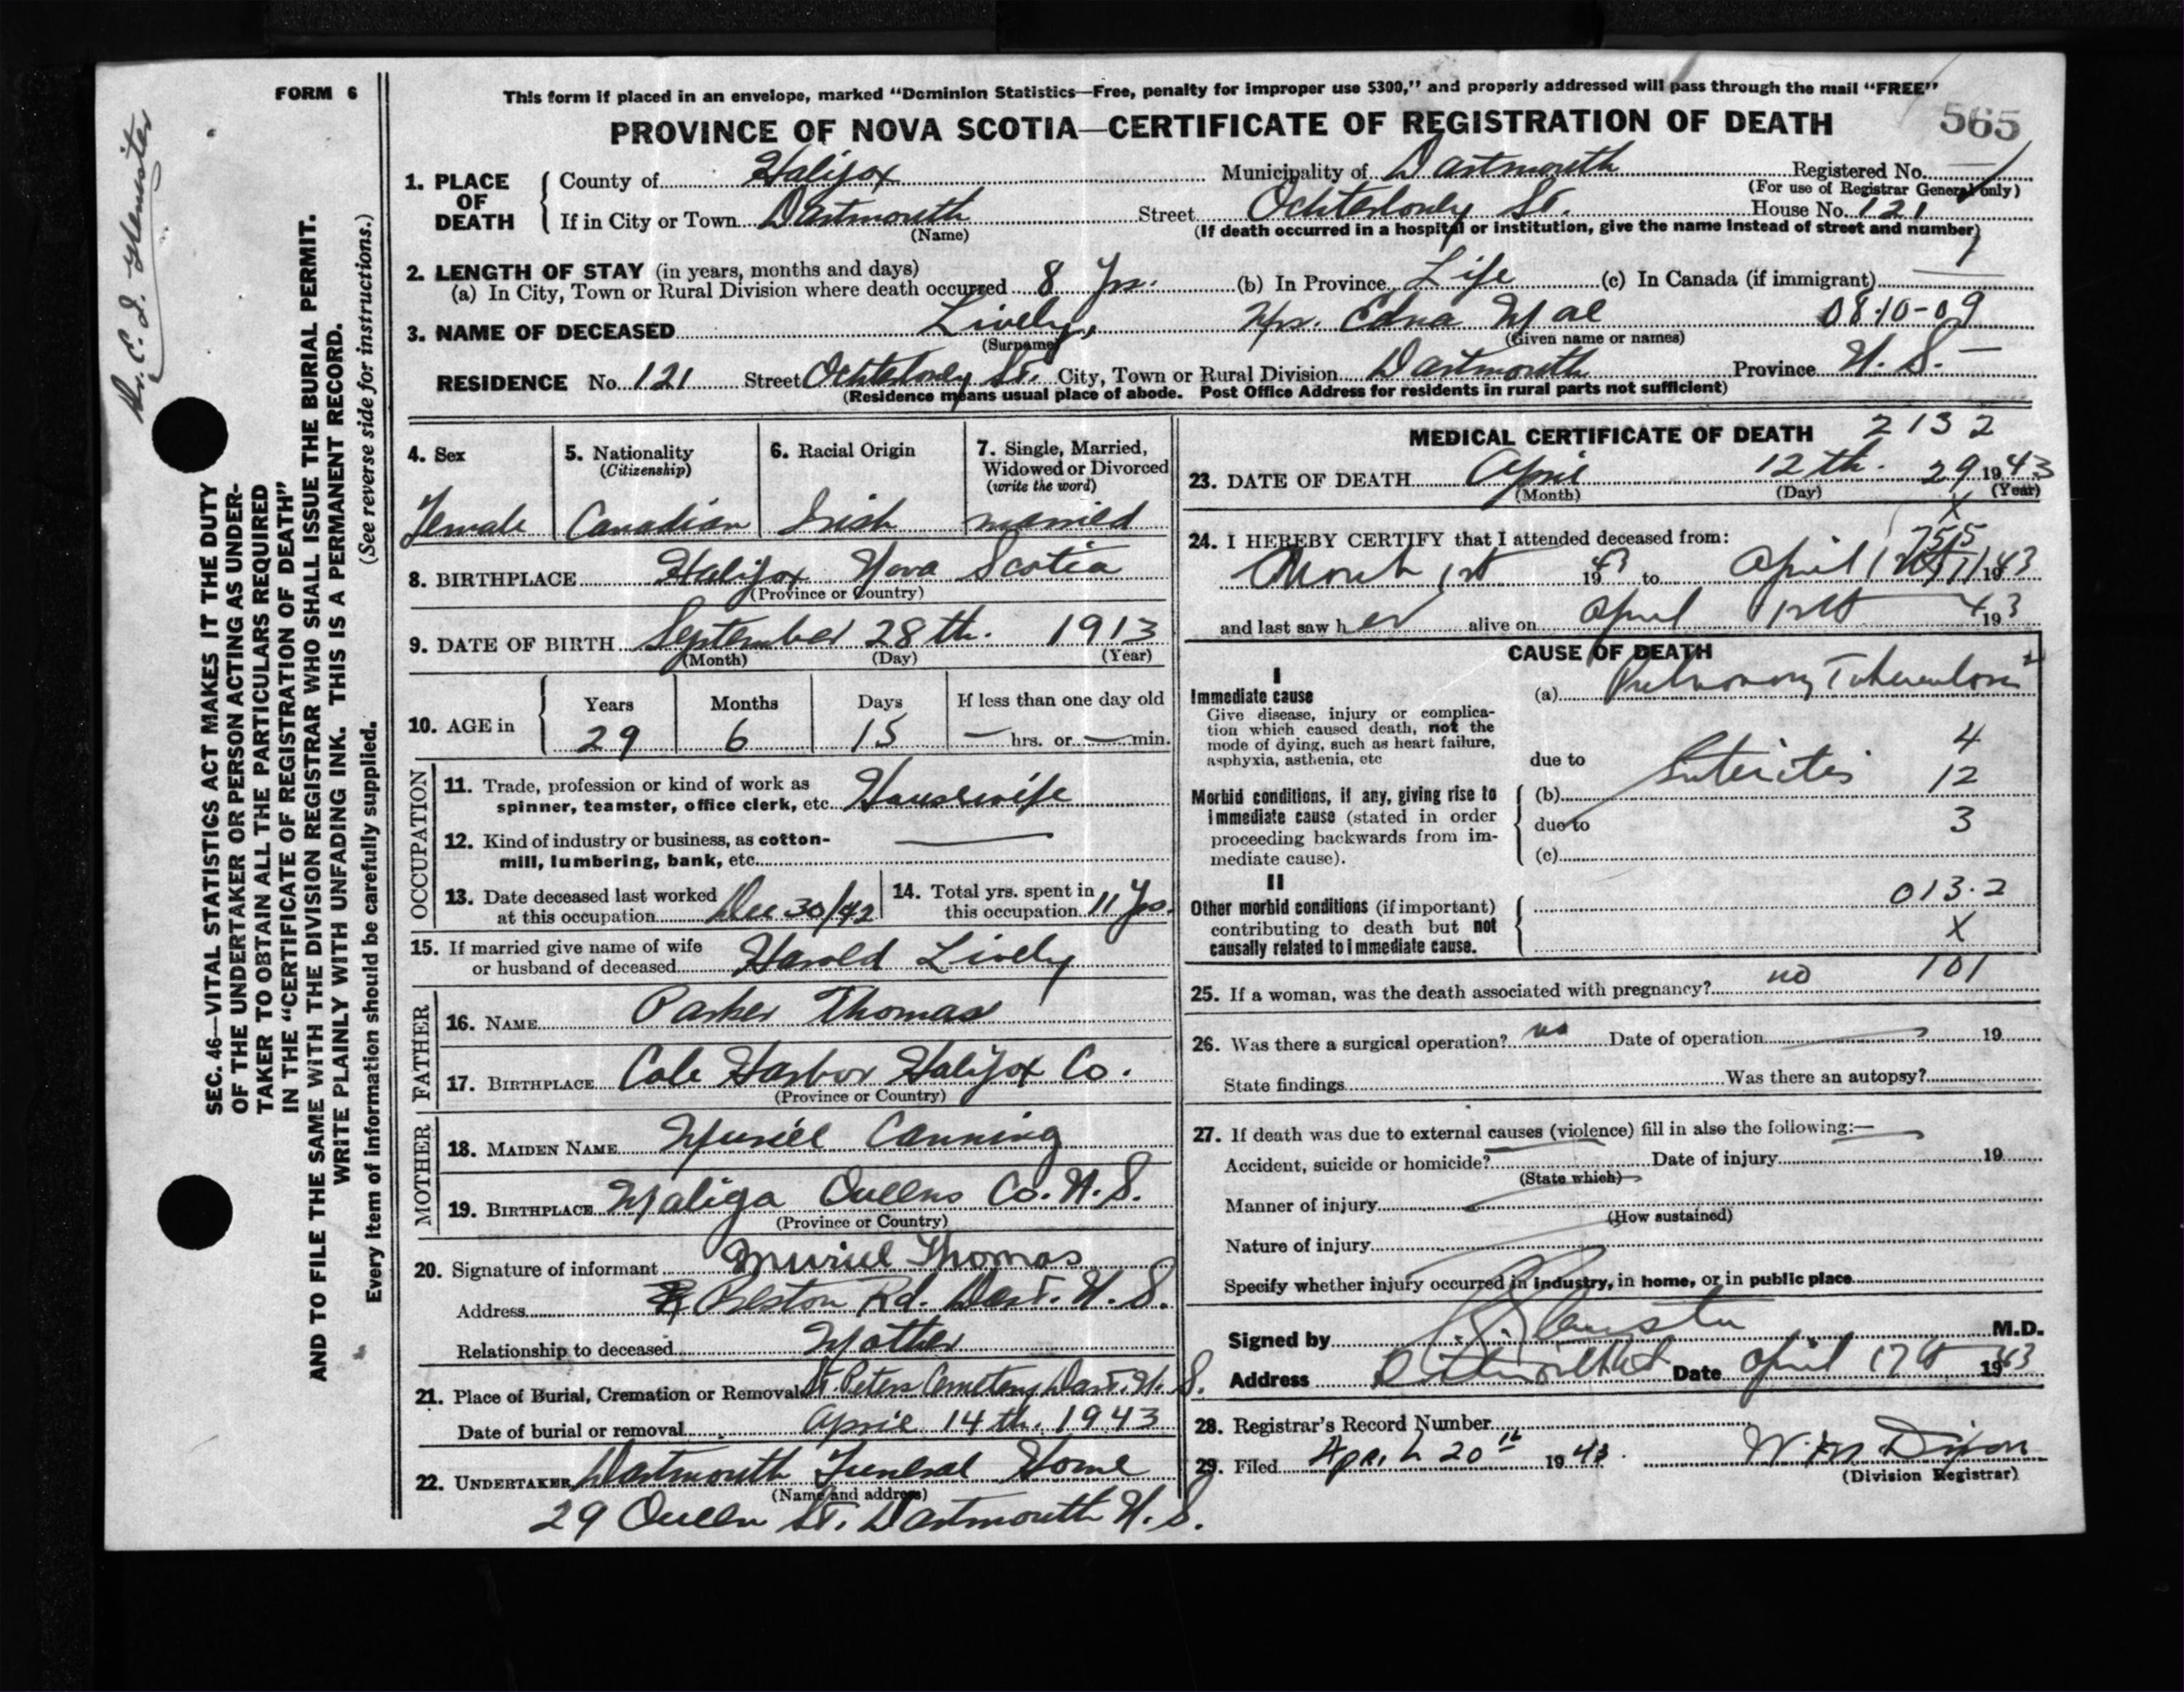 FORM 6
Dr. C. I.
SEC. 46—VITAL STATISTICS ACT MAKES IT THE DUTY
OF THE UNDERTAKER OR PERSON ACTING AS UNDER-
TAKER TO OBTAIN ALL THE PARTICULARS REQUIRED
IN THE "CERTIFICATE OF REGISTRATION OF DEATH"
AND TO FILE THE SAME WITH THE DIVISION REGISTRAR WHO SHALL ISSUE THE BURIAL PERMIT.
WRITE PLAINLY WITH UNFADING INK. THIS IS A PERMANENT RECORD.
Every item of information should be carefully supplied. (See reverse side for instructions.)
This form if placed in an envelope, marked "Dominion Statistics—Free, penalty for improper use $300," and properly addressed will pass through the mail "FREE"
PROVINCE OF NOVA SCOTIA—CERTIFICATE OF REGISTRATION OF DEATH 565
1. PLACE OF DEATH
County of Halifax Municipality of Dartmouth Registered No.
(For use of Registrar General only)
If in City or Town Dartmouth Street Ochterloney St. House No. 121
(Name) (If death occurred in a hospital or institution, give the name instead of street and number)
2. LENGTH OF STAY (in years, months and days)
(a) In City, Town or Rural Division where death occurred 8 Yrs. (b) In Province Life (c) In Canada (if immigrant) —
3. NAME OF DECEASED Lively, Mrs. Edna Mae 08.10-09
(Surname) (Given name or names)
RESIDENCE No. 121 Street Ochterloney St. City, Town or Rural Division Dartmouth Province N. S.
(Residence means usual place of abode. Post Office Address for residents in rural parts not sufficient)
4. Sex Female
5. Nationality (Citizenship) Canadian
6. Racial Origin Irish
7. Single, Married, Widowed or Divorced (write the word) married
8. BIRTHPLACE Halifax Nova Scotia
(Province or Country)
9. DATE OF BIRTH September 28th. 1913
(Month) (Day) (Year)
10. AGE in Years 29 Months 6 Days 15 If less than one day old — hrs. or — min.
OCCUPATION
11. Trade, profession or kind of work as
spinner, teamster, office clerk, etc. Housewife
12. Kind of industry or business, as cotton-
mill, lumbering, bank, etc. —
13. Date deceased last worked
at this occupation Dec 30/42
14. Total yrs. spent in
this occupation 11 Yrs.
15. If married give name of wife
or husband of deceased Harold Lively
FATHER
16. NAME Parker Thomas
17. BIRTHPLACE Cole Harbor Halifax Co.
(Province or Country)
MOTHER
18. MAIDEN NAME Muriel Canning
19. BIRTHPLACE Maliga Queens Co. N. S.
(Province or Country)
20. Signature of informant Muriel Thomas
Address Preston Rd. Dart. N. S.
Relationship to deceased Mother
21. Place of Burial, Cremation or Removal St. Peters Cemetery Dart. N. S.
Date of burial or removal April 14th. 1943
22. UNDERTAKER Dartmouth Funeral Home
(Name and address)
29 Queen St. Dartmouth N. S.
MEDICAL CERTIFICATE OF DEATH 2132
23. DATE OF DEATH April 12th. 29 1943
(Month) (Day) (Year)
24. I HEREBY CERTIFY that I attended deceased from:
March 1st 1943 to April 1943
and last saw her alive on April 12th 1943
CAUSE OF DEATH
I
Immediate cause (a) Pulmonary Tuberculosis
Give disease, injury or complica-
tion which caused death, not the
mode of dying, such as heart failure,
asphyxia, asthenia, etc
due to
4
Morbid conditions, if any, giving rise to
immediate cause (stated in order
proceeding backwards from im-
mediate cause).
(b) Enteritis 12
due to 3
(c)
II
Other morbid conditions (if important)
contributing to death but not
causally related to immediate cause.
013.2
X
101
25. If a woman, was the death associated with pregnancy? no
26. Was there a surgical operation? no Date of operation 19
State findings Was there an autopsy?
27. If death was due to external causes (violence) fill in also the following:—
Accident, suicide or homicide? Date of injury 19
(State which)
Manner of injury
(How sustained)
Nature of injury
Specify whether injury occurred in industry, in home, or in public place
Signed by M.D.
Address Date April 1943
28. Registrar's Record Number
29. Filed April 20th 1943. W. M. Dixon
(Division Registrar)